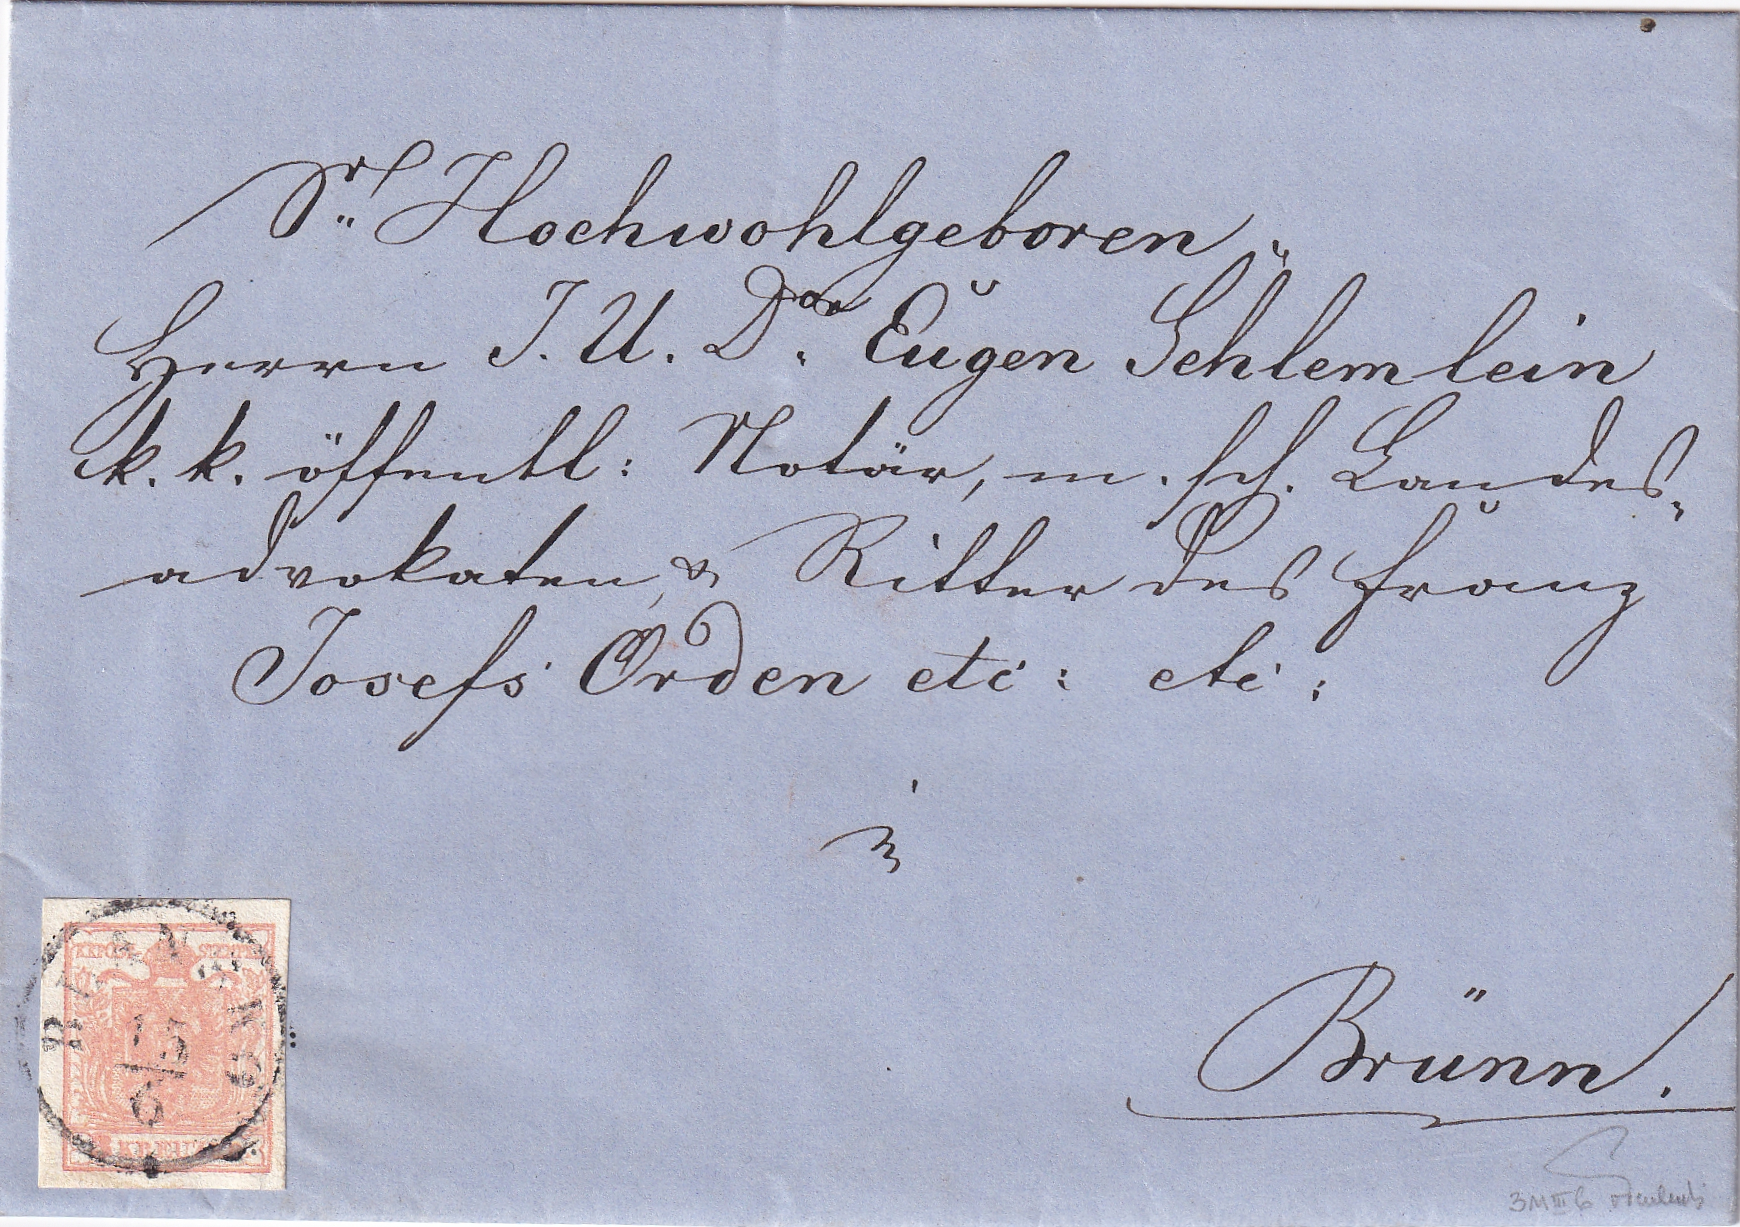 Sr. Hochwohlgeboren
Herrn J. U. Dor. Eugen Schlemlein
k. k. öffentl: Notär, m. sch. Landes-
advokaten, & Ritter des Franz
Josefs Orden etc: etc:
Brünn.
BLANSKO
13/6
KREUZER
3MIII6